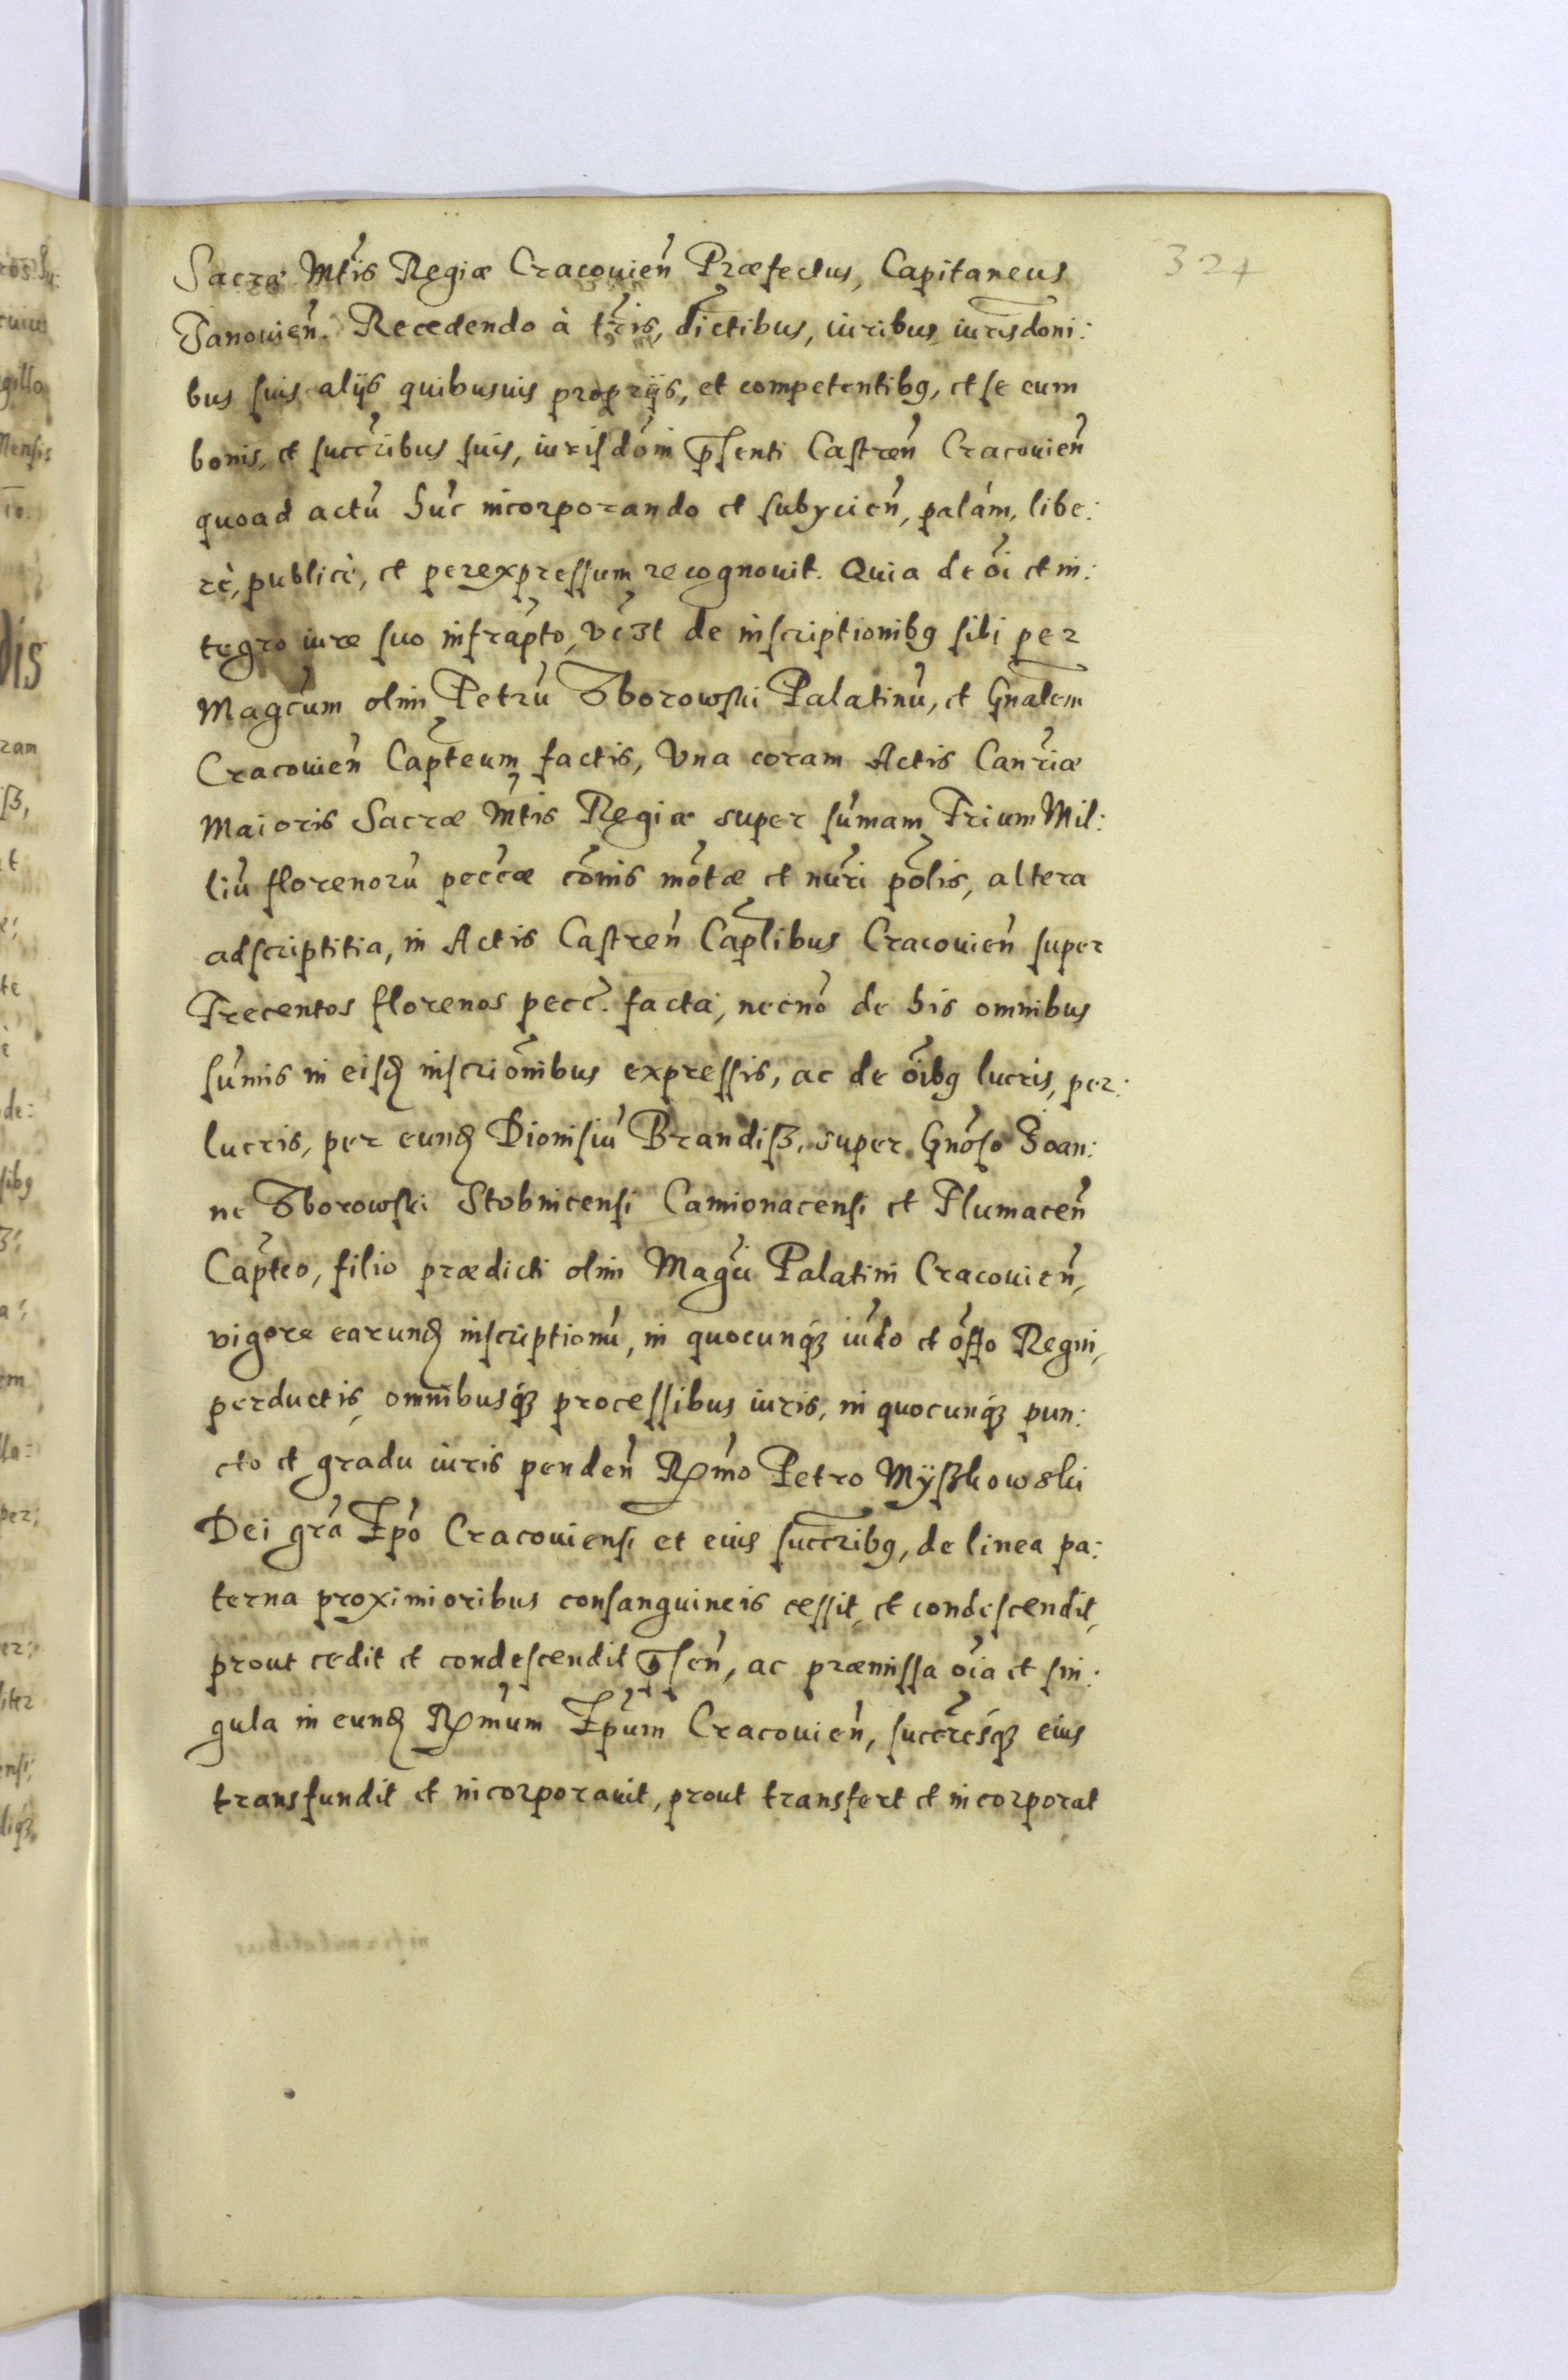 324
Sacræ Mt̃is Regiæ Cracouien̄ Præfectus, Capitaneus
Janouien̄. Recedendo à tr̃is, dic̃tibus, iuribus, iurisdoni:
bus suis, alijs quibusuis proprijs, et competentibꝯ, et se cum
bonis, et succr̃ibus suis, iurisdõni p̃senti Castren̄ Cracouien̄
quoad actũ hũc incorporando et subycien̄, palám, libe:
rè, publicè, et perexpressum recognouit. Quia de õi et in:
tegro iure suo infrap̃to, vc̃zt de inscriptionibꝯ sibi per
Magc̃um olim Petrũ Zborowski Palatinũ, et Gñalem
Cracouien̄ Capt̃eum factis, Vna coram Actis Canr̃iæ
Maioris Sacræ Mt̃is Regiæ super sũmam Trium Mil:
liũ florenorũ pecc̃æ cõnis mõtæ et nũri põlis, altera
adscriptitia, in Actis Castren̄ Capl̃ibus Cracouien̄ super
Trecentos florenos pecc̃. facta, necnõ de his omnibus
sũmis in eisꝺ inscriõnibus expressis, ac de õibꝯ lucris, per:
lucris, per eunꝺ Dionisiũ Brandisz, super Gnõso Joan:
ne Zborowski Stobnicensi Camionacensi et Tlumacen̄
Capt̃eo, filio prædicti olim Magc̃i Palatini Cracouien̄,
vigore earunꝺ inscriptionũ, in quocunqȝ iud̃o et õffo Regni,
perductis, omnibusqȝ processibus iuris, in quocunqȝ pun:
cto et gradu iuris penden̄ Rm̃o Petro Myszkowski
Dei grã Ep̃o Cracouiensi et eius succr̃ibꝯ, de linea pa:
terna proximioribus consanguineis cessit, et condescendit,
prout cedit et condescendit p̃sen̄, ac præmissa õia et sin:
gula in eunꝺ Rm̃um Ep̃um Cracouien̄, succr̃esqȝ eius
transfundit et incorporauit, prout transfert et incorporat